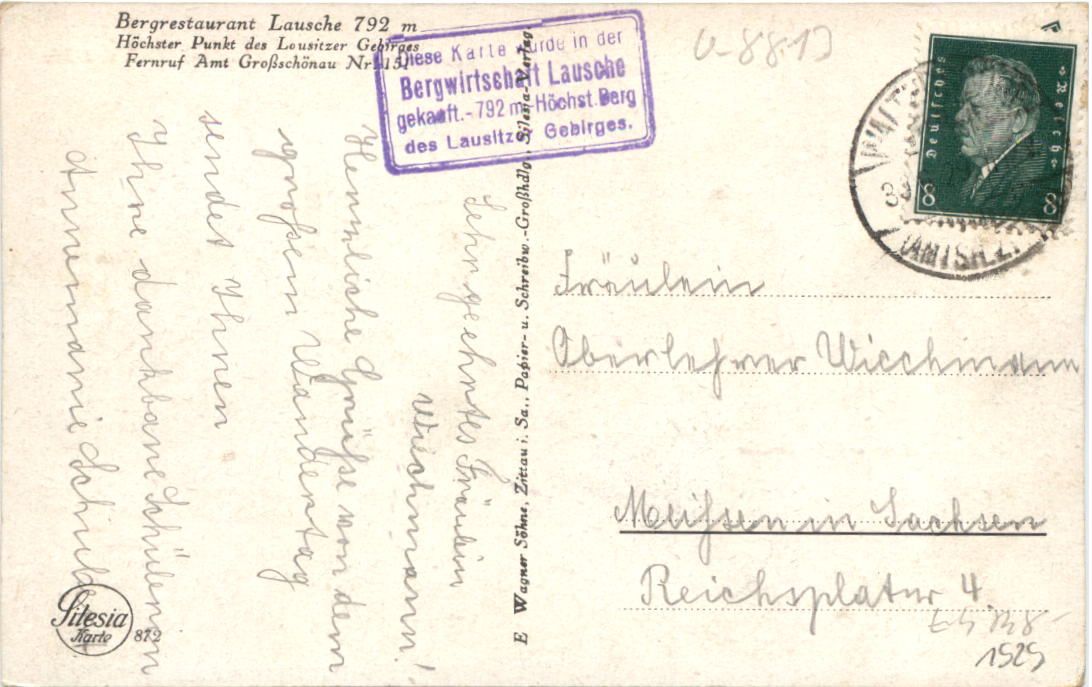 Bergrestaurant Lausche 792 m
Höchster Punkt des Lousitzer Gebirges
Fernruf Amt Großschönau Nr. 151
Diese Karte wurde in der
Bergwirtschaft Lausche
gekauft.-792 m-Höchst.Berg
des Lausitzer Gebirges.
Deutsches Reich
8 8
Sehrgeehrtes Fräulein
Wiechmann!
Herrzliche Grüße von dem
großen Wandertag
sendet Ihnen
Ihre dankbare Schülerin
Annemarie
E Wagner Söhne, Zittau i. Sa., Papier- u. Schreibw.-Großhdlg., Silesia-Verlag
Fräulein
Oberlehrer Wiechmann
Meißen in Sachsen
Reichsplatz 4.
1929
Silesia
Karte
872